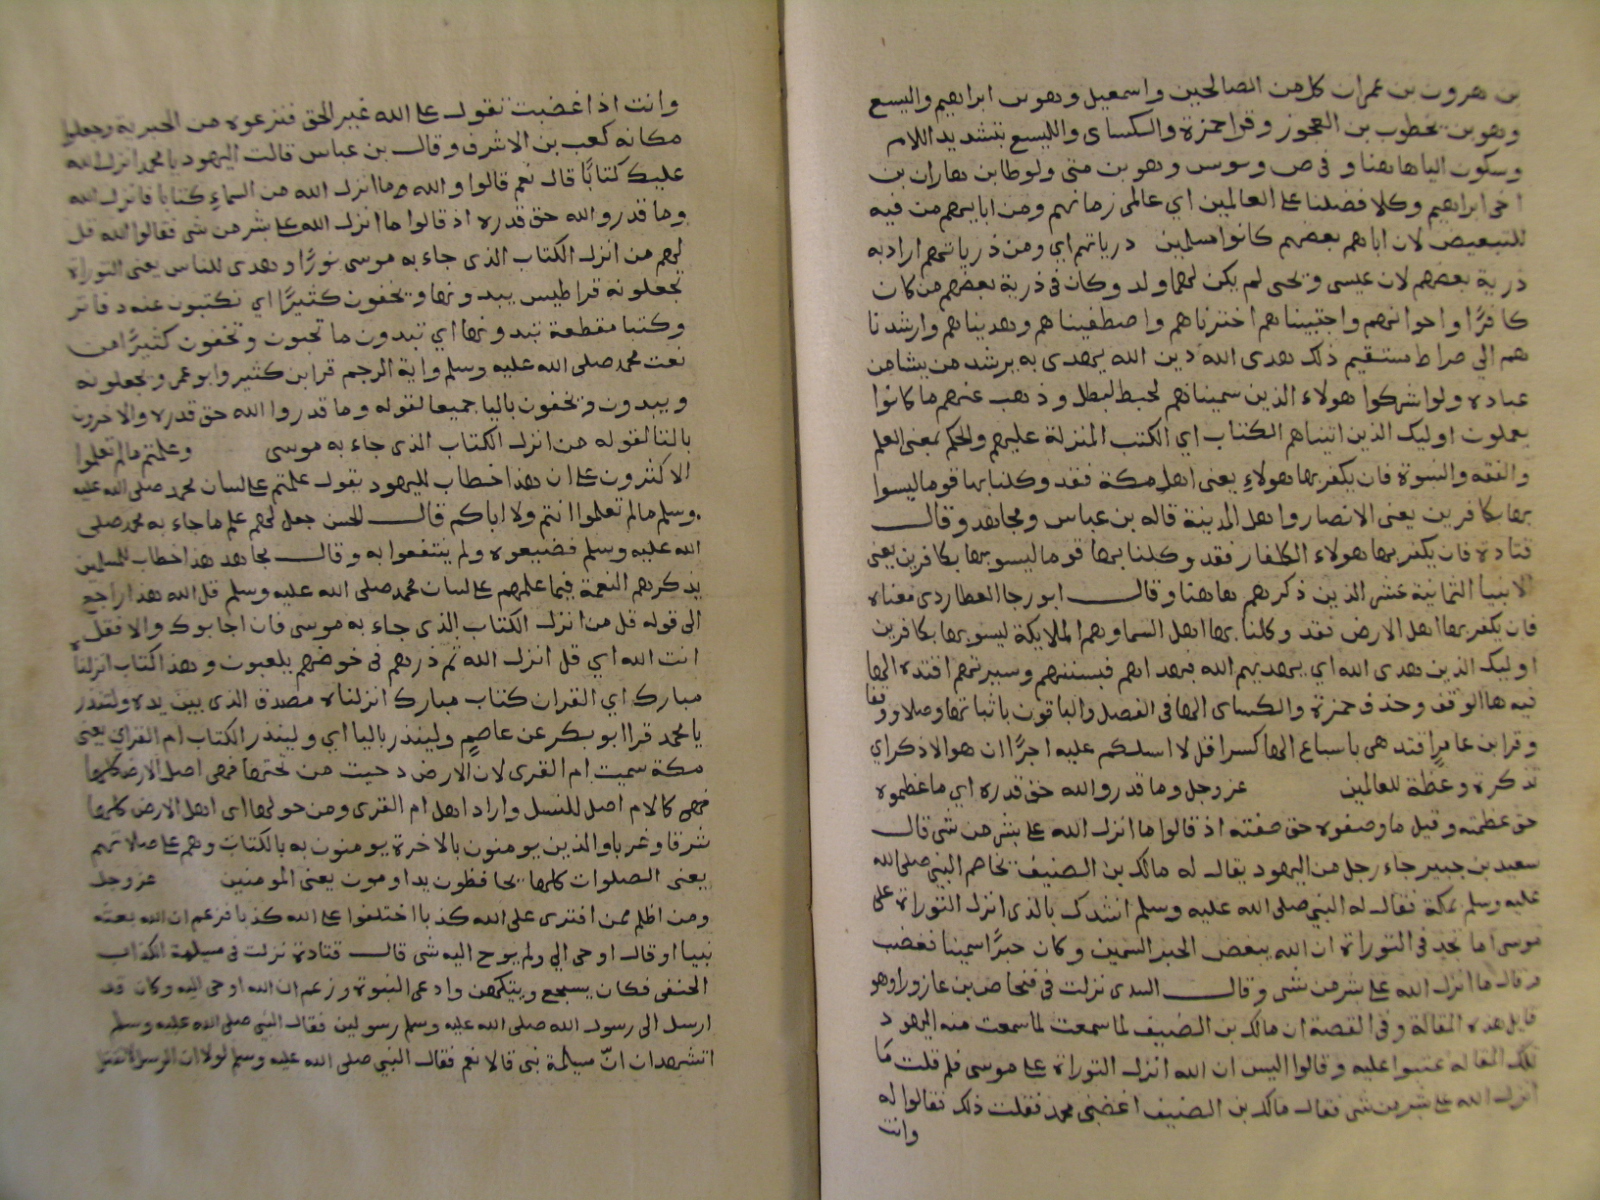 بن هرون بن عمران كل من الصالحين واسمعيل وهو بن ابراهيم واليسع
وهو بن يخطوب بن العجوز وقرا حمزة والكساى والليسع بتشديد اللام
وسكون اليا هاهنا و فى ص ويونس وهو بن متى ولوطا بن هاران بن
اخى ابراهيم وكلا فضلنا على العالمين اي عالمى زمانهم ومن ابايهم من فيه
للتبعيض لان اباهم بعضهم كانوا مسلمين درياتهم اي ومن ذرياتهم اراد به
ذرية بعضهم لان عيسى ويحيى لم يكن لهما ولد وكان فى ذرية بعضهم من كان
كافرًا واخوانهم واجتبيناهم اخترناهم واصطفيناهم وهديناهم وارشدنا
هم الي صراط مستقيم ذلك هدى الله دين الله يهدى به يرشد من يشا من
عباده ولو اشركوا هولاء الذين سميناهم لحبط لبطل وذهب عنهم ما كانوا
يعملون اوليك الذين اتيناهم الكتاب اي الكتب المنزلة عليهم والحكم بمعنى العلم
والفقه والنبوة فان يكفر بها هولاءِ يعنى اهل مكة فقد وكلنا بها قوما ليسوا
بها بكافرين يعنى الانصار واهل المدينة قاله بن عباس ومجاهد وقال
قتادة فان يكفر بها هولاء الكفار فقد وكلنا بها قوما ليسو بها بكافرين يعنى
الانبيا الثمانية عشر الذين ذكرهم هاهنا وقال ابو رجا العطاردى معناه
فان يكفر بها اهل الارض فقد وكلنا بها اهل السما وهم الملايكة ليسو بها بكافرين
اوليك الذين هدى الله اي يهديهم الله فبهداهم فبسنتهم وسيرتهم اقتده الها
فيه ها الوقف وحذف حمزة والكساى الها فى الفصل والباقون باثباتها وصلا ووقفا
وقرا بن عامرٍ اقتدهى باسباع الها كسرا قل لا اسلكم عليه اجرًا ان هو الا ذكراي
تذكرة وعظة للعالمين عز وجل وما قدرو الله حق قدره اي ما عظموه
حق عظمته وقيل ما وصفوه حق صفته اذ قالوا ما انزل الله على بشر من شى قال
سعيد بن جبير جاء رجل من اليهود يقال له مالك بن الصنيف يخاصم النبي صلى الله
عليه وسلم بمكة فقال له النبي صلى الله عليه وسلم انشدك بالذى انزل التوراة على
موسى اما تجد فى التوراة ان الله يبغض الحبر السمين وكان حبرًا سمينا فغضب
وقال ما انزل الله على بشر من شى وقال السدى نزلت فى فنحاص بن عازورا وهو
قايل هذه المقالة وفى القصة ان مالك بن الضيف لما سمعت لما سمعت منه اليهود
تلك المقاله عتبوا عليه وقالوا اليس ان الله انزل التوراة على موسى فلم قلت ما
انزل الله على بشر من شى فقال مالك بن الصنيف اغضبنى محمد فقلت ذلك فقالوا له
وانت
وانت اذا غضبت تقول على الله غير الحق فنزعوه من الحبرية وجعلوا
مكانه كعب بن الاشرف وقال بن عباس قالت اليهود يا محمد انزل الله
عليك كتابًا قال نعم قالوا والله ما انزل الله من السماءِ كتابا فانزل الله
وما قدرو الله حق قدره اذ قالوا ما انزل الله على بشر من شى فقالوا الله قل
لهم من انزل الكتاب الذى جاء به موسى نورًا وهدى للناس يعنى التوراة
تجعلونه قراطيس يبدونها ويخفون كثيرًا اي تكتبون عنه دفاتر
وكتبا مقطعة تبدونها اي تبدون ما تحبون وتخفون كثيرًا من
نعت محمد صلى الله عليه وسلم واية الرجم قرا بن كثير وابو عمر ويجعلونه
ويبدون ويخفون باليا جميعا لقوله وما قدروا الله حق قدره والاخرون
بالتا لقوله من انزل الكتاب الذى جاء به موسى وعلمتم ما لم تعلموا
الاكثرون على ان هذا خطاب لليهود يقول علمتم على لسان محمد صلى الله عليه
وسلم ما لم تعلموا انتم ولا اباكم قال الحسن جعل لهم علم ما جاء به محمد صلى
الله عليه وسلم فضيعوه ولم ينتفعوا به وقال مجاهد هذا خطاب للمسلمين
يذكرهم النعمة فيما علمهم على لسان محمد صلى الله عليه وسلم قل الله هذا راجع
الى قوله قل من انزل الكتاب الذى جاء به موسى فان اجابوك والا فقل
انت الله اي قل انزل الله ثم ذرهم فى خوضهم يلعبون وهذا كتاب انزلنا
مبارك اي القران كتاب مبارك انزلناه مصدق الذى بين يده ولتنذر
يا محمد قرا ابو بكر عن عاصم ولينذر باليا اي ولينذر الكتاب ام القراي يعنى
مكة سميت ام القرى لان الارض دحيت من تحتها فهى اصل الارض كلها
فهى كالام اصل للنسل واراد اهل ام القرى ومن حولها اى اهل الارض كلها
شرقا وغربا والذين يومنون بالاخرة يومنون به بالكتاب وهم على صلاتهم
يعنى الصلوات كلها يحافظون يداومون يعنى المومنين عز وجل
ومن اظلم ممن افترى على الله كذبا اختلفوا على الله كذبا فزعم ان الله بعثه
نبيا او قال اوحى الي ولم يوح اليه شى قال قتادة نزلت فى مسيلمة الكذاب
الحنفى فكان يسجع ويتكهن وادعى النبوة وزعم ان الله اوحى اليه وكان قد
ارسل الى رسول الله صلى الله عليه وسلم رسولين فقال النبي صلى الله عليه وسلم
اتشهدان انّ مسيلمة نبى قالا نعم فقال النبي صلى الله عليه وسلم لولا ان الرسل لا تقتل